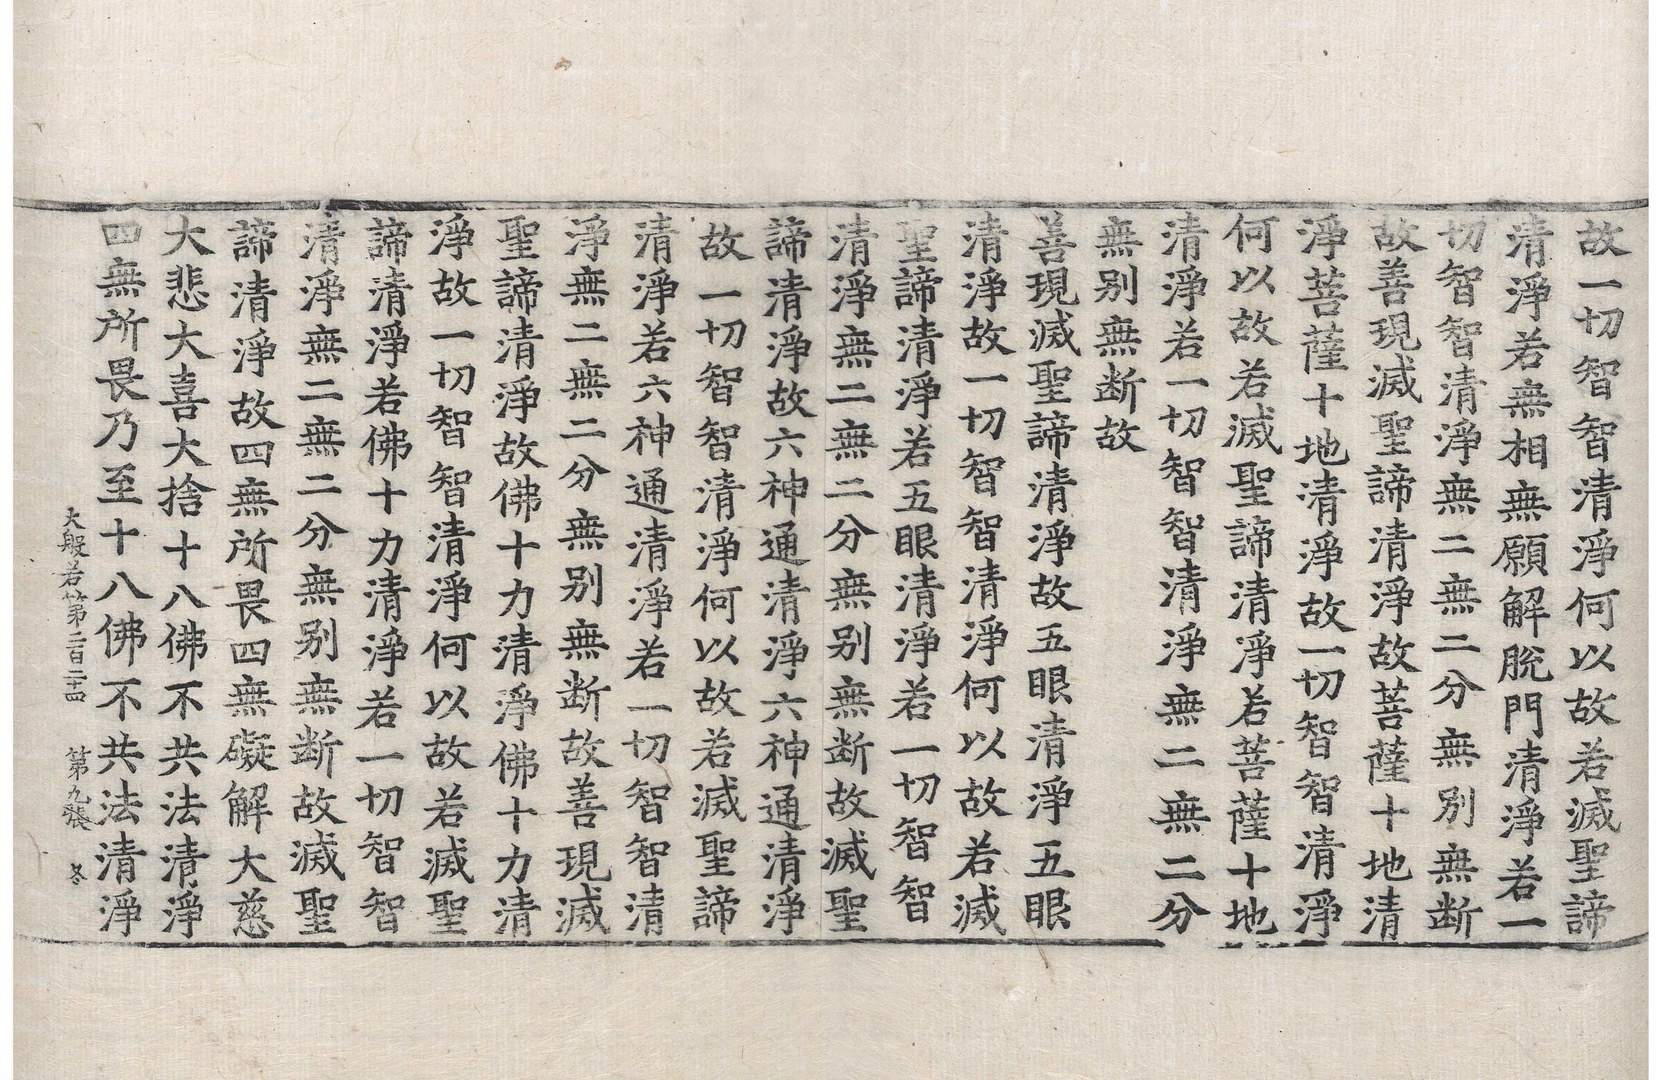 故一切智智清淨何以故若滅聖諦
清淨若無相無願解脫門清淨若一
切智智清淨無二無二分無別無断
故善現滅聖諦清淨故菩薩十地清
淨菩薩十地清淨故一切智智清淨
何以故若滅聖諦清淨若菩薩十地
清淨若一切智智清淨無二無二分
無别無断故
善現滅聖諦清淨故五眼清淨五眼
清淨故一切智智清淨何以故若滅
聖諦清淨若五眼清淨若一切智智
清淨無二無二分無别無断故滅聖
諦清淨故六神通清淨六神通清淨
故一切智智清淨何以故若滅聖諦
清淨若六神通清淨若一切智智清
淨無二無二分無别無断故善現滅
聖諦清淨故佛十力清淨佛十力清
淨故一切智智清淨何以故若滅聖
諦清淨若佛十力清淨若一切智智
清淨無二無二分無别無断故滅聖
諦清淨故四無所畏四無礙解大慈
大悲大喜大捨十八佛不共法清淨
四無所畏乃至十八佛不共法清淨
大般若第二百二十四 第九張 冬